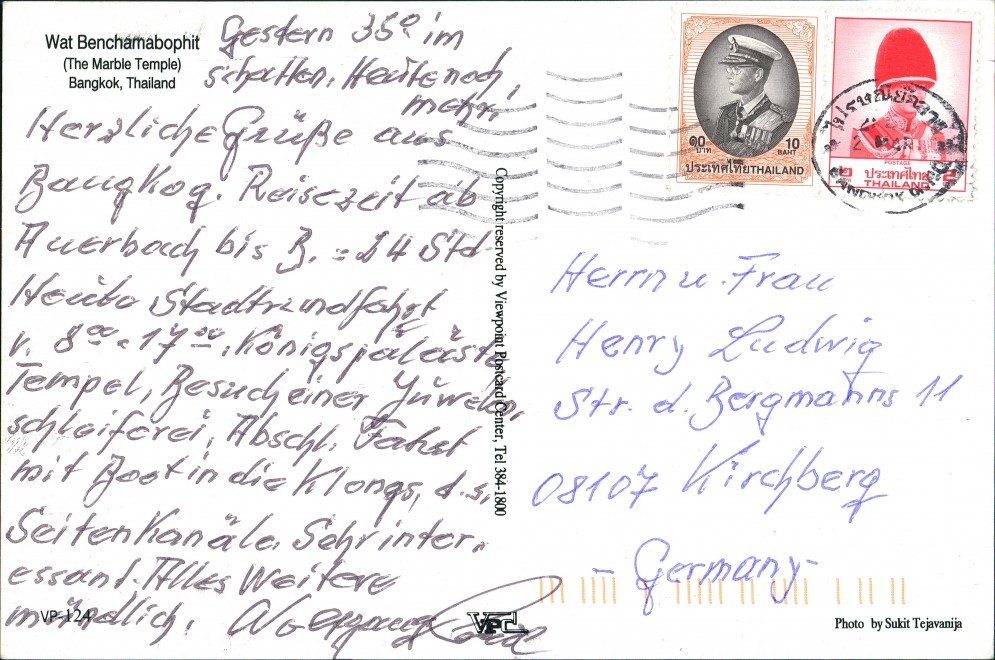 Wat Benchamabophit
(The Marble Temple)
Bangkok, Thailand
Gestern 35° im
schatten, Heute noch
mehr,
Herzliche Grüße aus
Bangkog. Reisezeit ab
Auerbach bis B. = 24 Std
Heute Stadtrundfahrt
v. 8 00 - 17 00, Königspaläste
Tempel, Besuch einer Juwelen,
schleiferei, Abschl. Fahrt
mit Boot in die Klongs, d.s,
Seitenkanäle. Sehr inter,
essant. Alles Weitere
mündlich, Wolfgang
VP-124
VPC
Copyright reserved by Viewpoint Postcard Center, Tel 384-1800
๑๐ บาท 10 BAHT
ประเทศไทย THAILAND
POSTAGE
ประเทศไทย
THAILAND
2
Herrn u. Frau
Henry Ludwig
Str. d. Bergmanns 11
08107 Kirchberg
- Germany -
Photo by Sukit Tejavanija